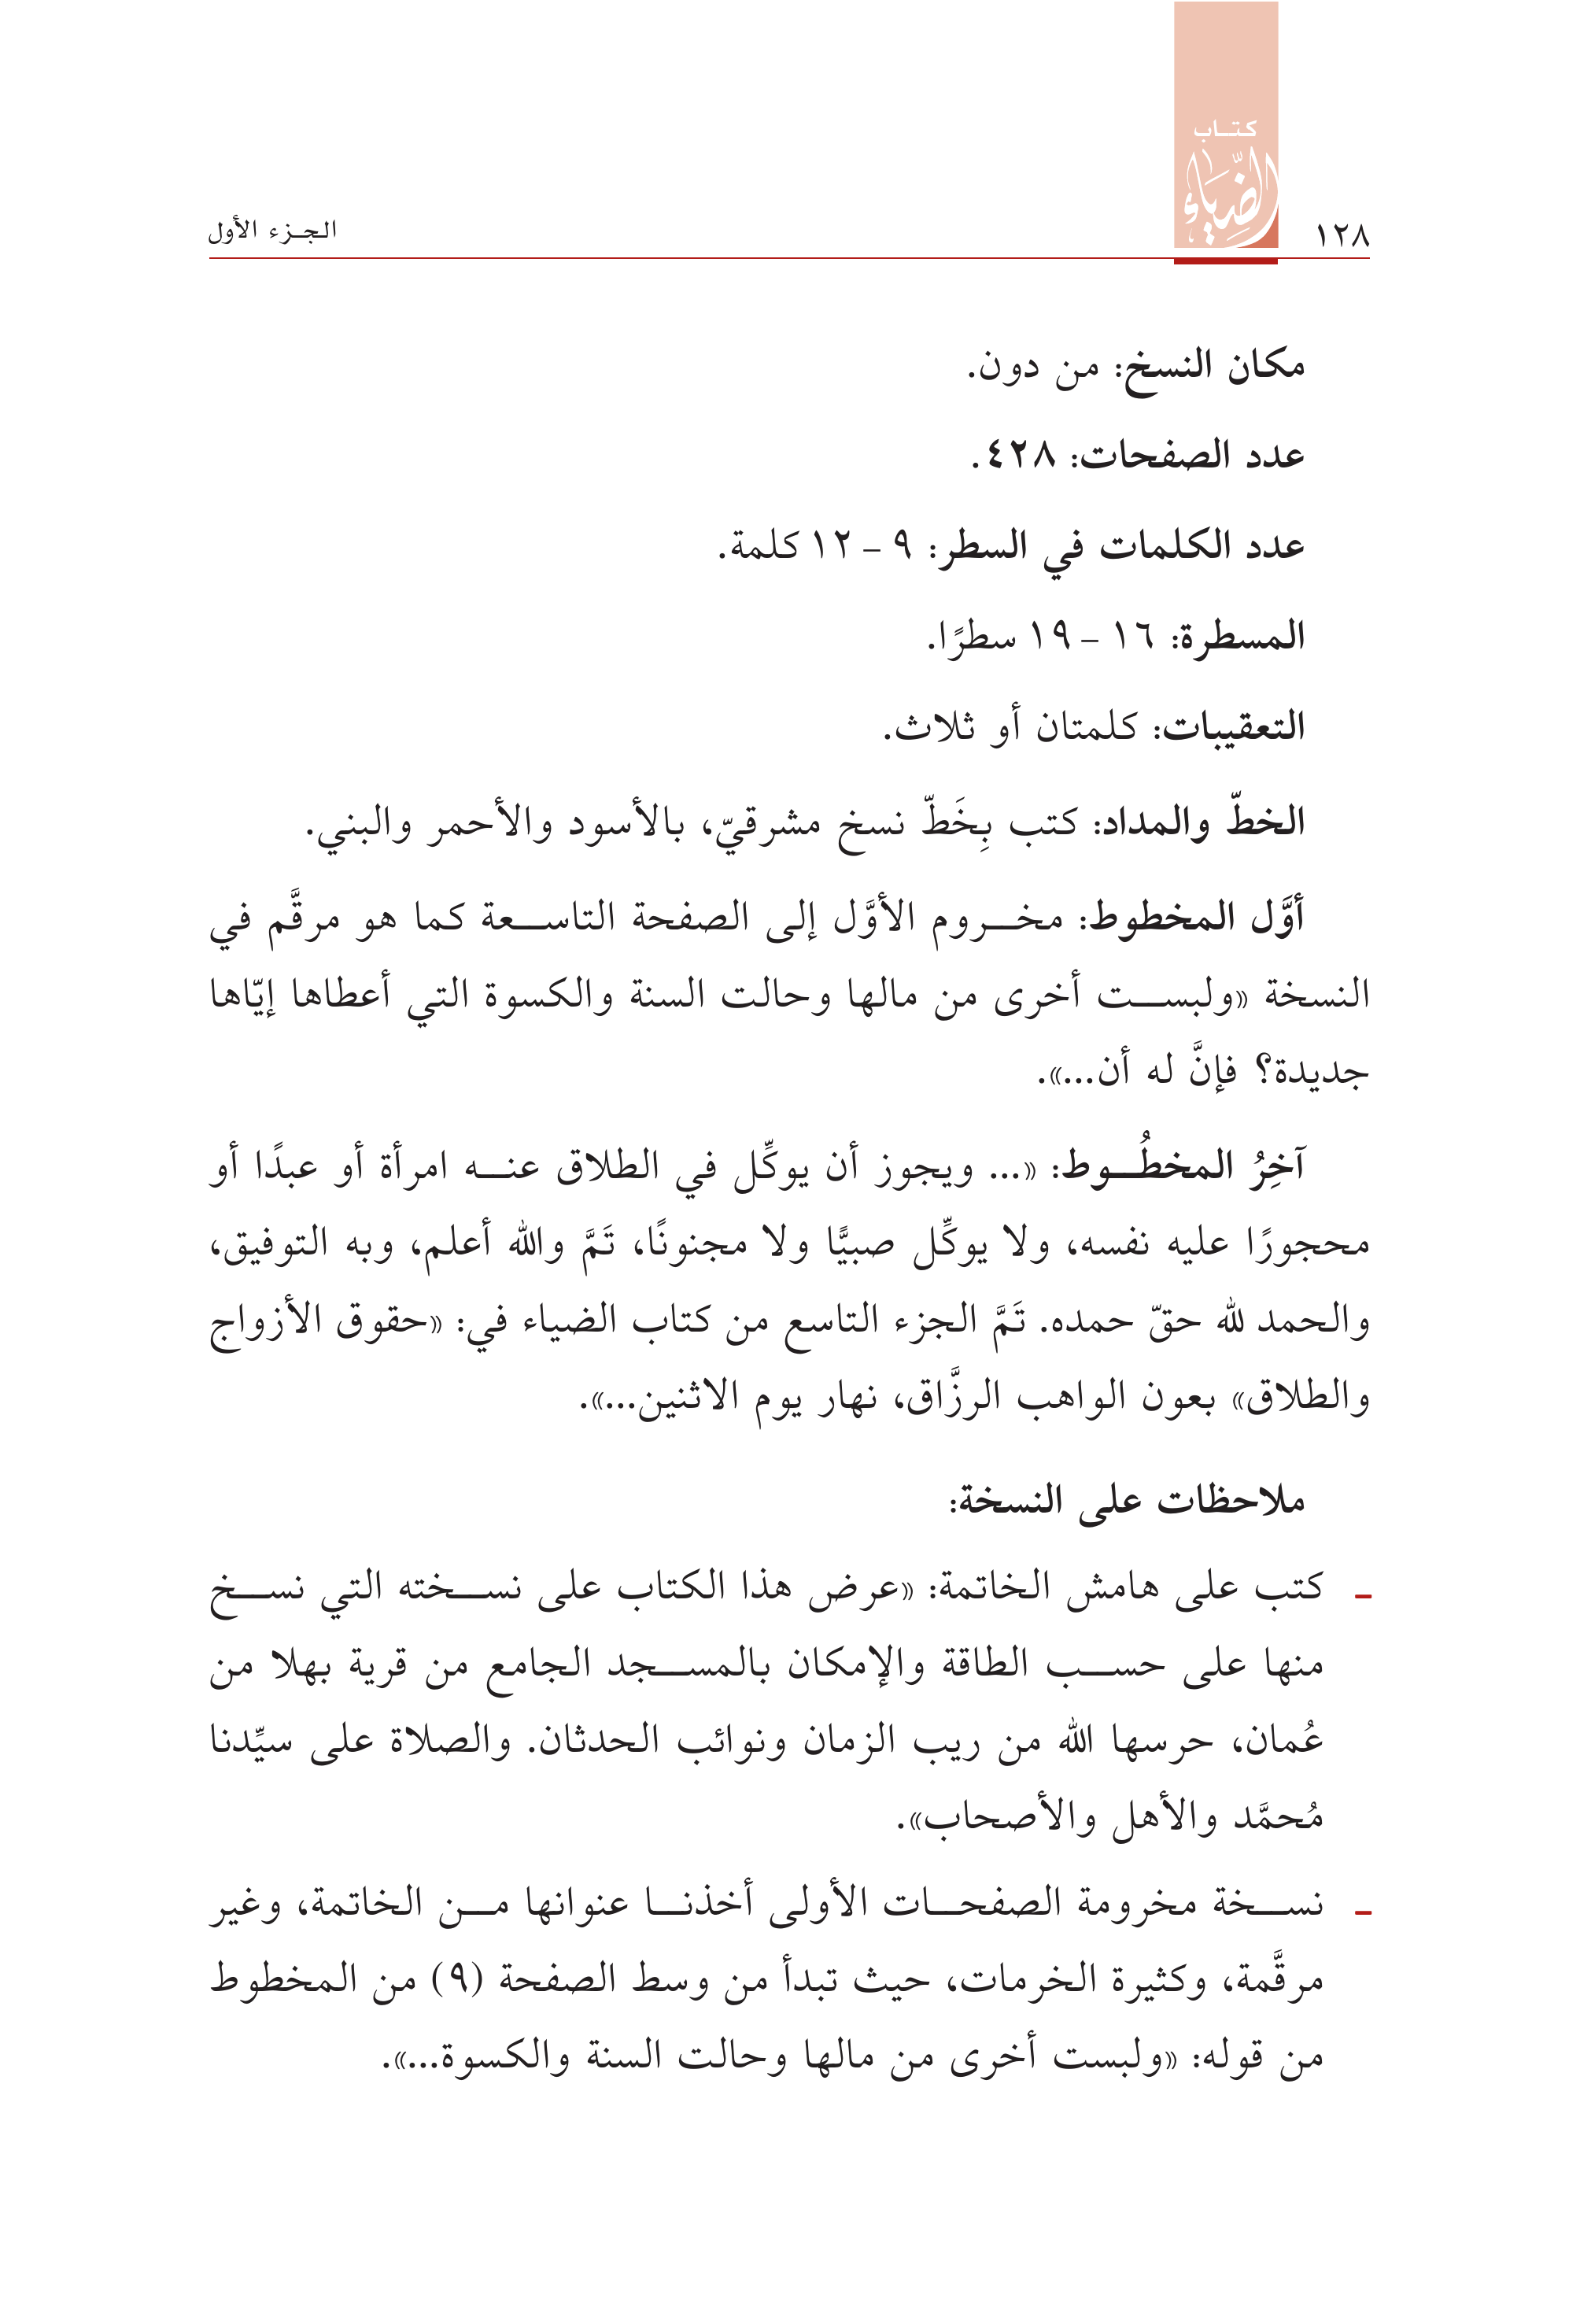 كتاب
الضياء
١٢٨
الجزء الأول
مكان النسخ: من دون.
عدد الصفحات: ٤٢٨.
عدد الكلمات في السطر: ٩ - ١٢ كلمة.
المسطرة: ١٦ - ١٩ سطرًا.
التعقيبات: كلمتان أو ثلاث.
الخطّ والمداد: كتب بِخَطّ نسخ مشرقيّ، بالأسود والأحمر والبني.
أوَّل المخطوط: مخروم الأوَّل إلى الصفحة التاسعة كما هو مرقَّم في
النسخة «ولبست أخرى من مالها وحالت السنة والكسوة التي أعطاها إيّاها
جديدة؟ فإنَّ له أن...».
آخِرُ المخطُوط: «... ويجوز أن يوكِّل في الطلاق عنه امرأة أو عبدًا أو
محجورًا عليه نفسه، ولا يوكِّل صبيًّا ولا مجنونًا، تَمَّ والله أعلم، وبه التوفيق،
والحمد لله حقّ حمده. تَمَّ الجزء التاسع من كتاب الضياء في: «حقوق الأزواج
والطلاق» بعون الواهب الرزَّاق، نهار يوم الاثنين...».
ملاحظات على النسخة:
ـ كتب على هامش الخاتمة: «عرض هذا الكتاب على نسخته التي نسخ
منها على حسب الطاقة والإمكان بالمسجد الجامع من قرية بهلا من
عُمان، حرسها الله من ريب الزمان ونوائب الحدثان. والصلاة على سيِّدنا
مُحمَّد والأهل والأصحاب».
ـ نسخة مخرومة الصفحات الأولى أخذنا عنوانها من الخاتمة، وغير
مرقَّمة، وكثيرة الخرمات، حيث تبدأ من وسط الصفحة (٩) من المخطوط
من قوله: «ولبست أخرى من مالها وحالت السنة والكسوة...».